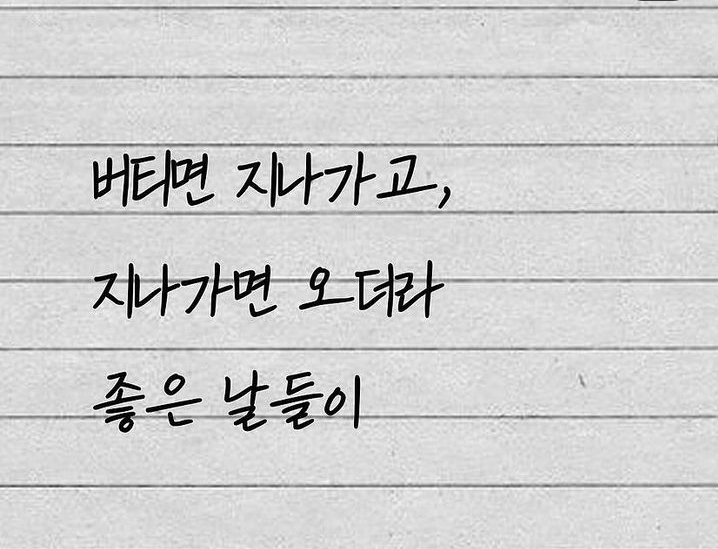 버티면 지나가고,
지나가면 오더라
좋은 날들이